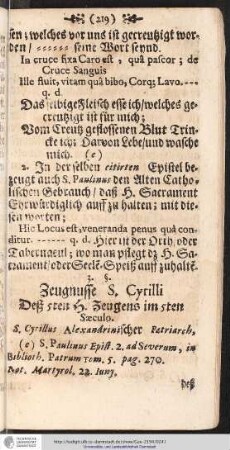 (219)
sen; welches vor uns ist gecreutzigt wor-
den / ------ seine Wort seynd.
In cruce fixa Caro est, quâ pascor; de
Cruce Sanguis
Ille fluit, vitam quâ bibo, Corq; Lavo. ----
q. d.
Das selbige Fleisch esse ich / welches ge-
creutzigt ist für mich;
Vom Creutz geflossenen Blut Trin-
cke ich; Darvon Lebe / und wasche
mich. (e)
2. In der selben citirten Epistel be-
zeugt auch S. Paulinus den Alten Catho-
lischen Gebrauch / daß H. Sacrament
Ehrwürdiglich auff zu halten; mit die-
sen worten;
Hic Locus est, veneranda penus quâ con-
ditur. ------- q. d. Hier ist der Orth / oder
Tabernacul; wo man pflegt dz H. Sa-
crament / oder Seele-Speiß auff zuhaltē.
§.
Zeugnusse S. Cyrilli
Deß 5ten H. Zeugens im 5ten
Sæculo.
S. Cyrillus Alexandrinischer Petriarch,
(e) S. Paulinus Epist. 2. ad Severum, in
Biblioth. Patrum tom. 5. pag. 270.
Not. Martyrol, 22. Iunÿ.
Deß